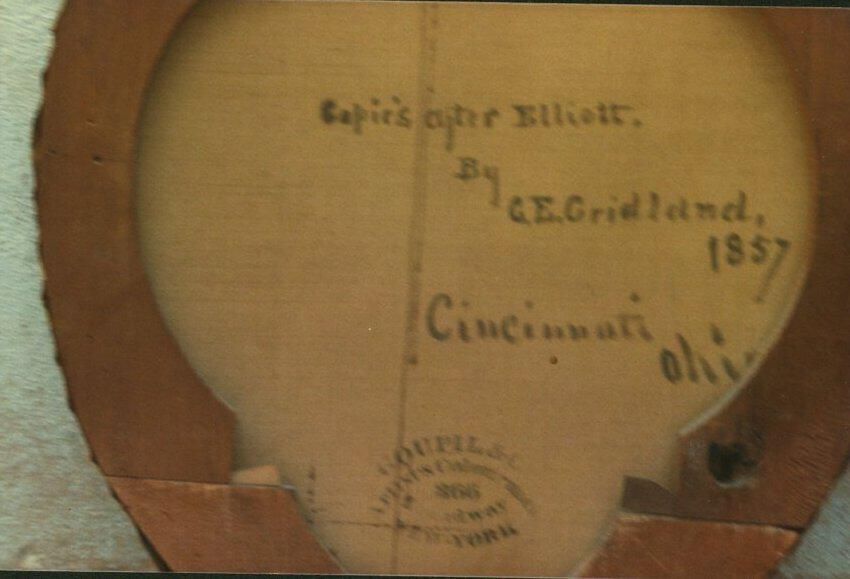 Copie's after Elliott.
By
C.E. Gridland,
1857
Cincinnati
Ohio
GOUPIL & C
366
NEW-YORK